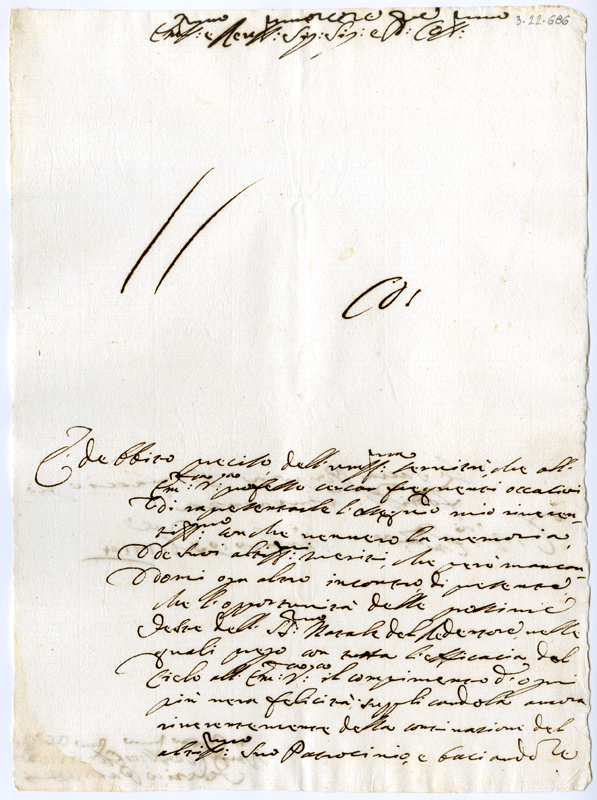 3-22-686
Em:ᵐᵒ e Reu:ᵐᵒ Sig: Sig: e P: Col:ᵐᵒ
È debbito preciso dell'umiss:ᵐᵃ seruitù, che all'
Em:ᶻᵃ V:ʳᵃ professo cercar frequenti occasioni
di rapresentarle l'ossequio mio riueren-
tiss:ᵐᵒ con che uenero la memoria
de suoi altiss:ᵐⁱ meriti, che però mancan-
domi ogn altro incontro di presente
che l'opportunità delle prossime
feste dell S:ᵐᵒ Natale del Redentore nelle
quali prego con tutta l'efficacia dal
Cielo all' Em:ᶻᵃ V:ʳᵃ il compimento d'ogni
più uera felicità supplicandola ancora
riuerentemente della continuazione del
altiss:ᵐᵒ suo Patrocinio, e baciandole